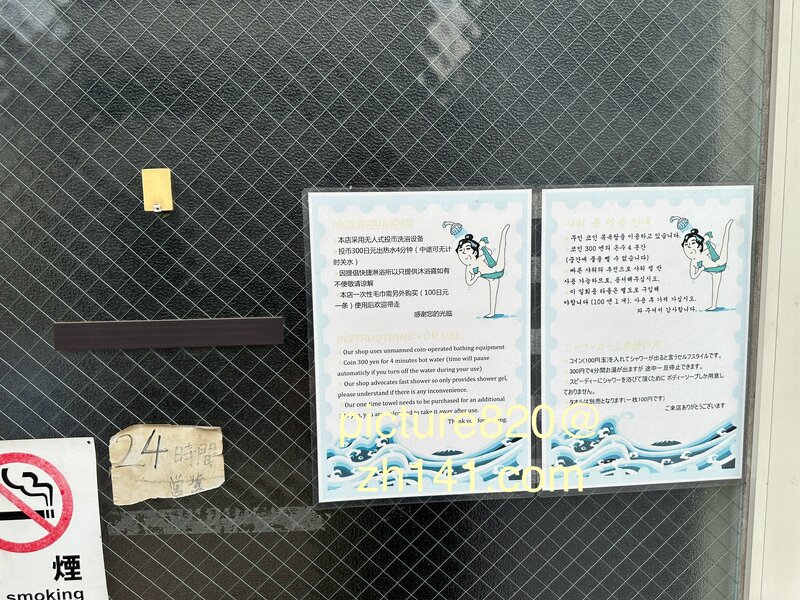 冲凉房使用说明
·本店采用无人式投币洗浴设备
·投币300日元出热水4分钟（中途可无计
时关水）
·因提倡快捷淋浴所以只提供沐浴露如有
不便敬请谅解
·本店一次性毛巾需另外购买（100日元
一条）使用后欢迎带走
感谢您的光临
INSTRUCTIONS FOR USE
·Our shop uses unmanned coin-operated bathing equipment
·Coin 300 yen for 4 minutes hot water (time will pause
automaticly if you turn off the water during your use)
·Our shop advocates fast shower so only provides shower gel,
please understand if there is any inconvenience.
·Our one time towel needs to be purchased for an additional
you to take it away after use.
Thank you for
샤워 룸 이용 안내
·무인 코인 목욕탕을 이용하고 있습니다.
·코인 300 엔의 온수 4 분간
(중간에 물을 뺄 수 없습니다)
·빠른 샤워의 추진으로 샤워 젤 만
사용 가능하므로, 용서해주십시오.
·이 일회용 타올은 별도로 구입해
야합니다 (100 엔 1 개). 사용 후 가져 가십시오.
와 주셔서 감사합니다.
シャワールームの使い方
·コイン(100円玉)を入れてシャワーが出ると言うセルフスタイルです。
·300円で4分間お湯が出ますが 途中一旦停止できます。
·スピーディーにシャワーを浴びて頂くために ボディーソープしか用意し
ておりません。
·タオルは別売となります(一枚100円です)
ご来店ありがとうございます
24時間
営業
煙
smoking
picture820@
zh141.com